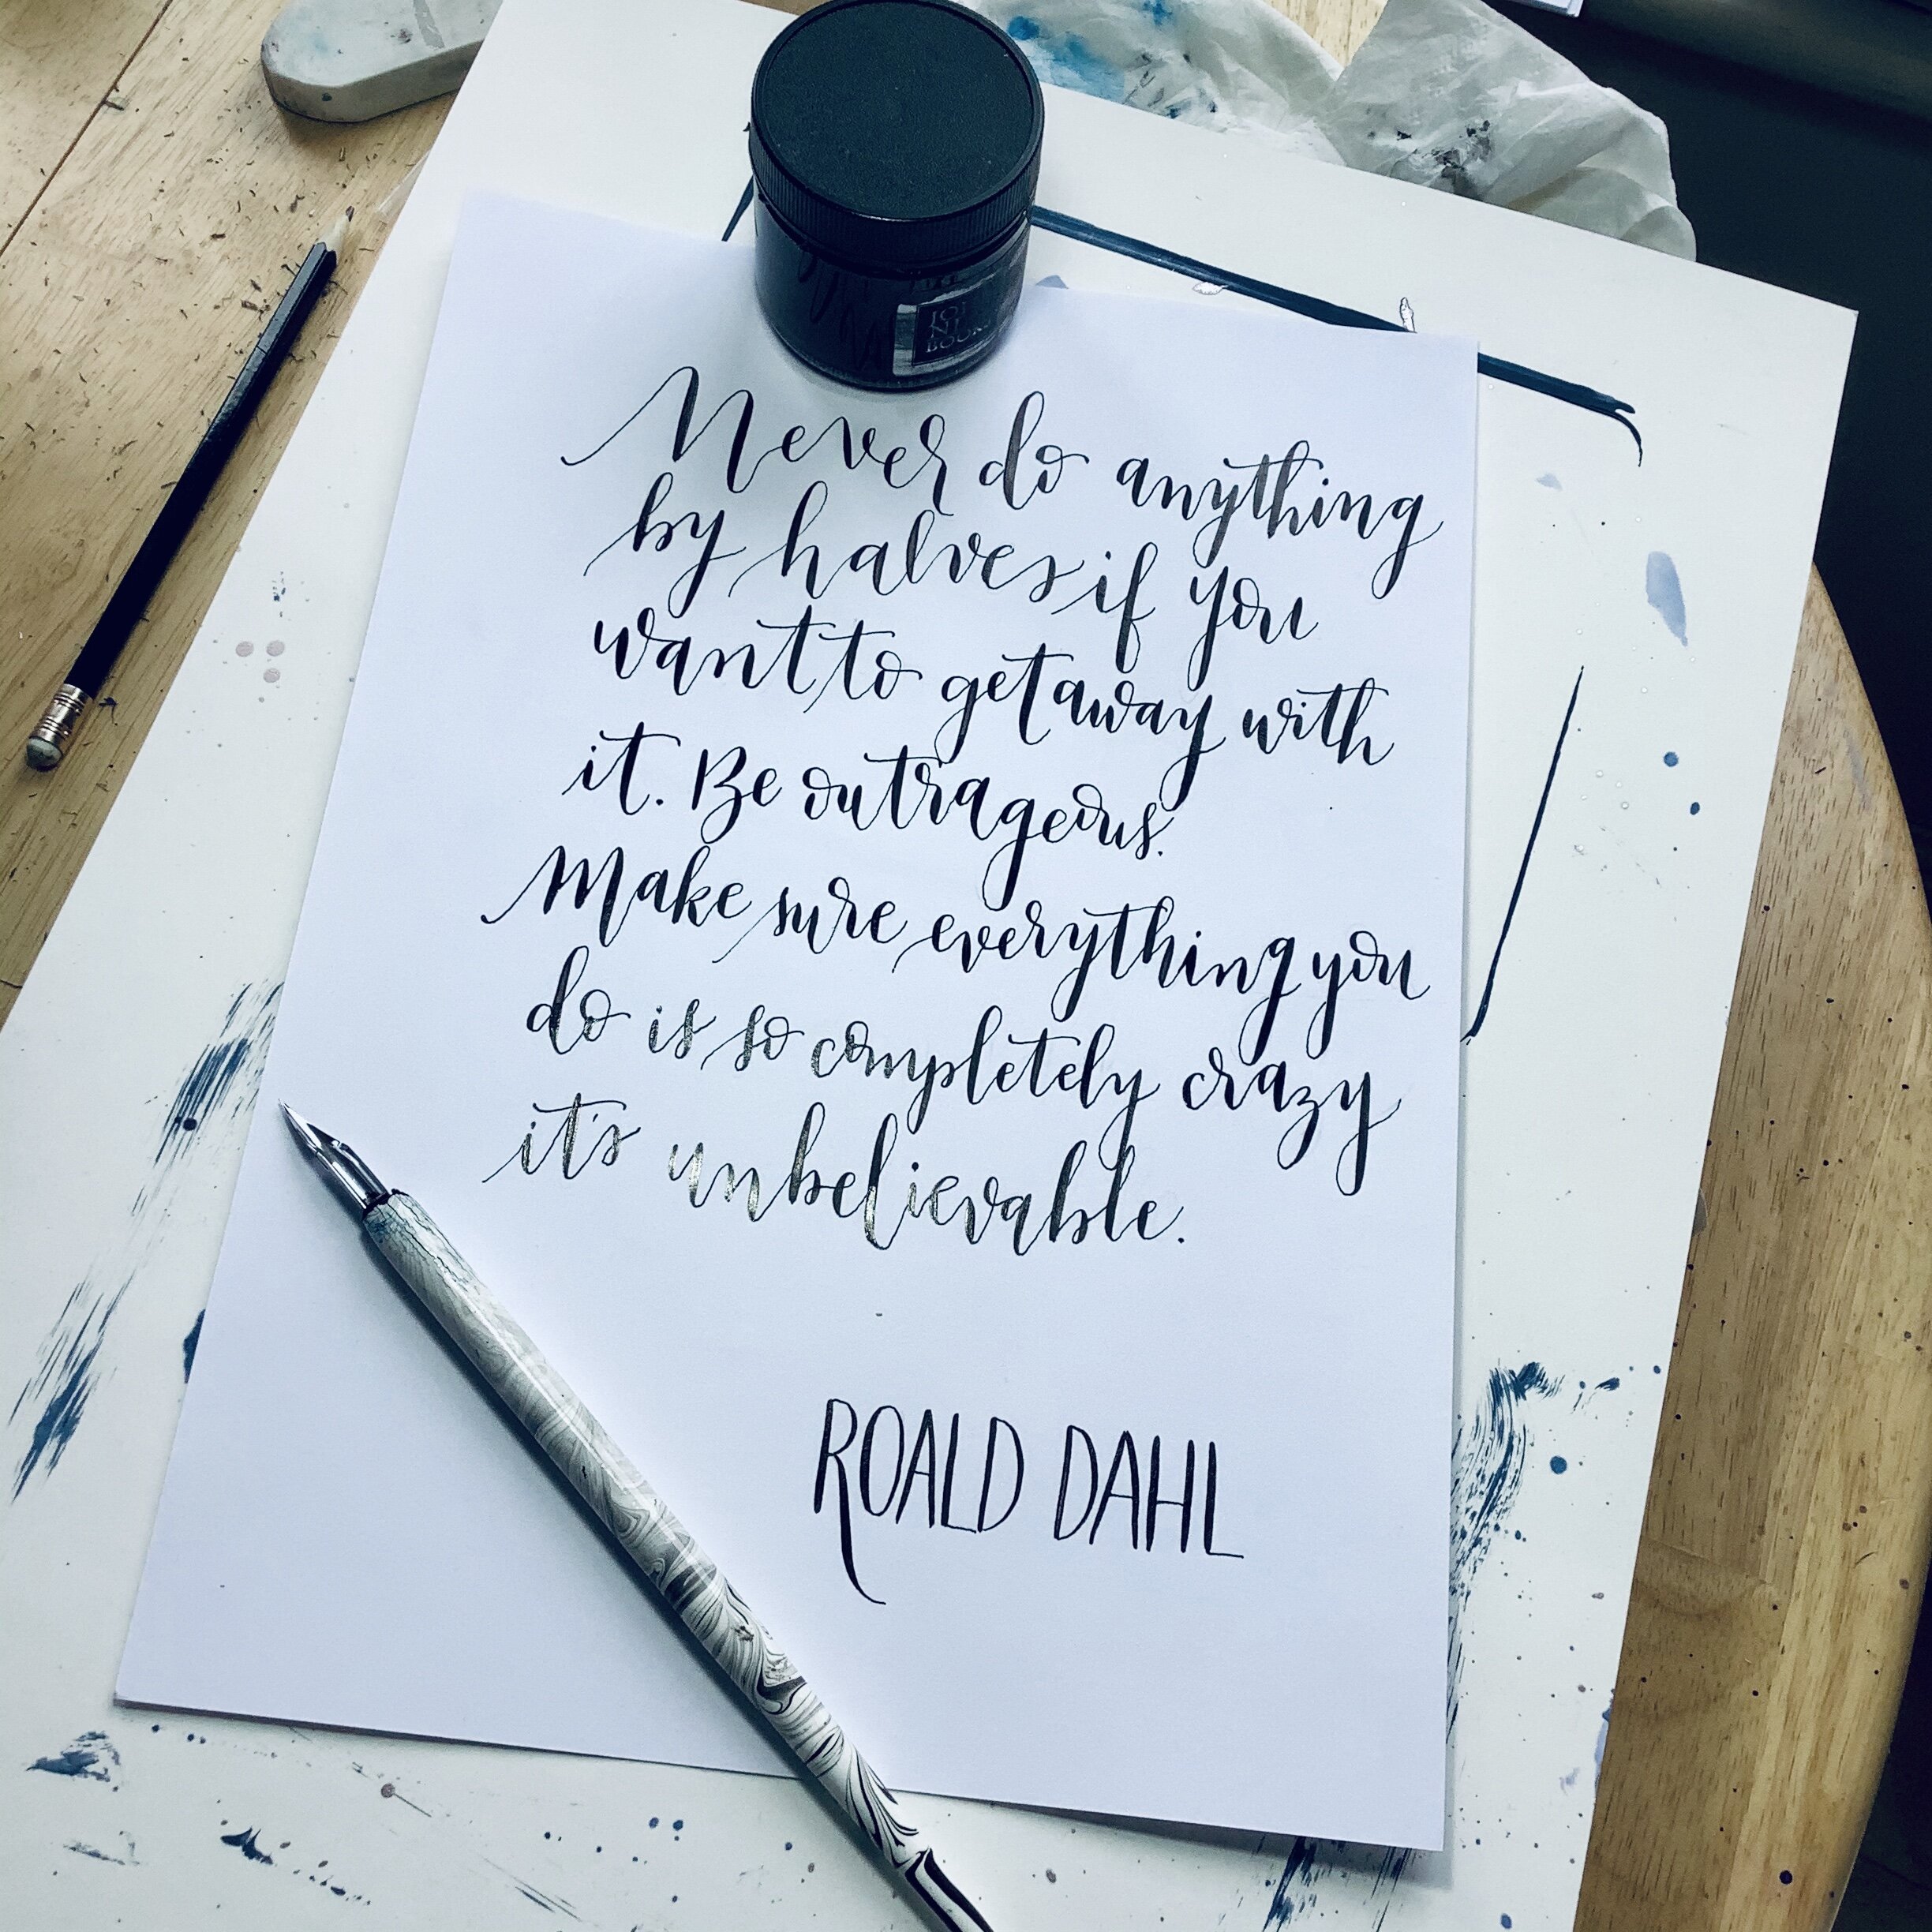 Never do anything
by halves if you
want to get away with
it. Be outrageous.
Make sure everything you
do is so completely crazy
it's unbelievable.
ROALD DAHL